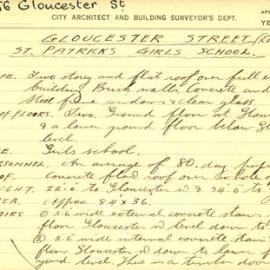 56 Gloucester St
CITY ARCHITECT AND BUILDING SURVEYOR'S DEPT.
GLOUCESTER STREET
ST. PATRICKS GIRLS SCHOOL.
Two storey and flat roof over full
building Brick walls, Concrete and
Steel fire windows & clear glass
FLOORS. Two. Ground floor at
& a lower ground floor below
level
Girls school.
An average of 80. day
OF. Concrete flat roof over whole of
22'.0" to Gloucester St & 34'.0" to
Approx 84 x 36.
① 3.6 wide external concrete stairs
floor Gloucester St level down to
② 2'.6 wide internal concrete stair
floor Gloucester St down to lower
yard level. There is a timber door